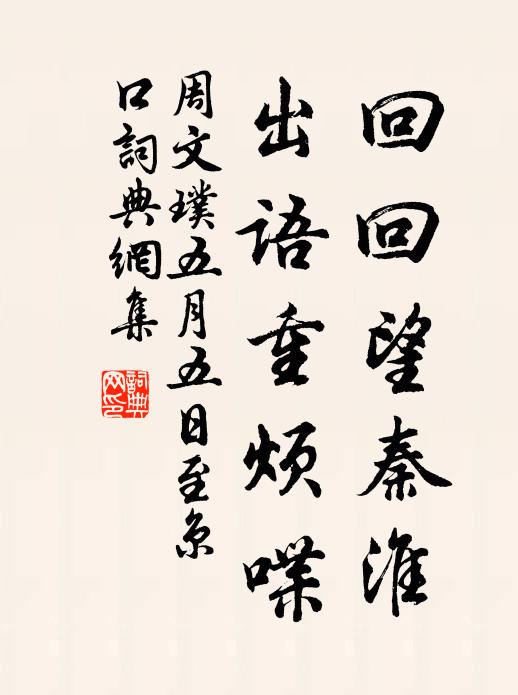 回回望秦淮
出语重烦喋
周文璞五月五日至京
口词典網集
詞典
网印